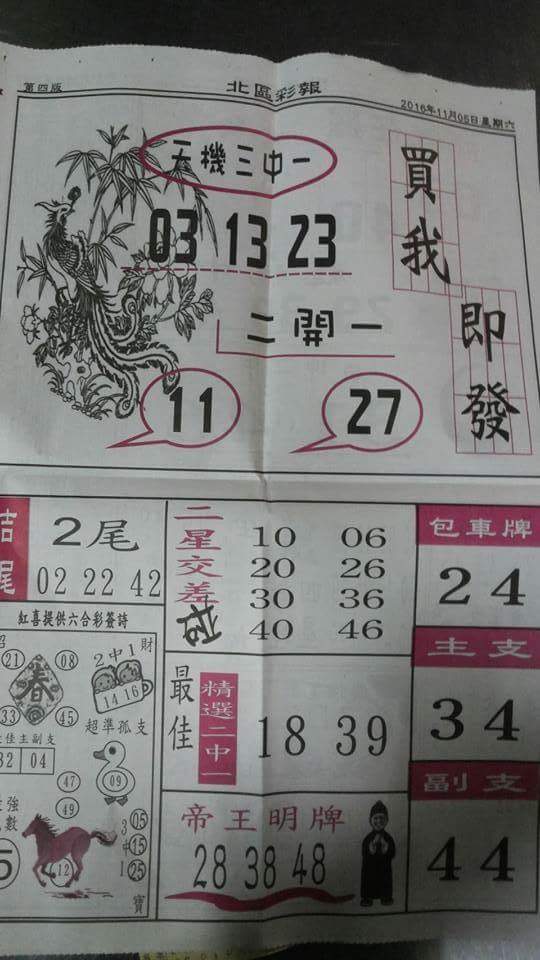 第四版
北區彩報
2016年11月05日星期六
天機三中一
03 13 23
買我
即發
二開一
11
27
吉尾
2尾
02 22 42
二星交差
10 06
20 26
30 36
40 46
包車牌
24
主支
34
副支
44
紅喜提供六合彩簽詩
招
財
21
08
春
33
45
2中1
14 16
超準孤支
09
佳主副支
32 04
47
49
強
數
5
12
3中1
05
15
25
寶
最佳
精選二中一
18 39
帝王明牌
28 38 48